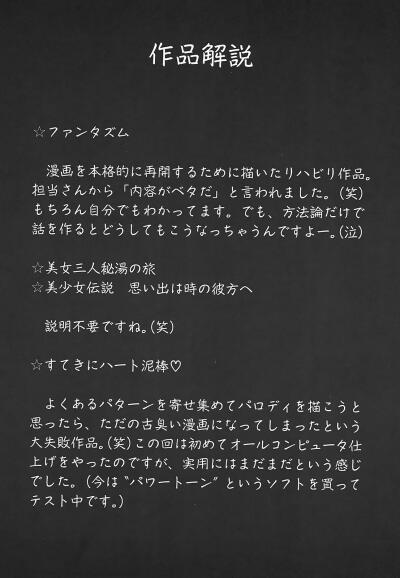 作品解説
☆ファンタズム
漫画を本格的に再開するために描いたリハビリ作品。
担当さんから「内容がベタだ」と言われました。(笑)
もちろん自分でもわかってます。でも、方法論だけで
話を作るとどうしてもこうなっちゃうんですよー。(泣)
☆美女三人秘湯の旅
☆美少女伝説　思い出は時の彼方へ
説明不要ですね。(笑)
☆すてきにハート泥棒♡
よくあるパターンを寄せ集めてパロディを描こうと
思ったら、ただの古臭い漫画になってしまったという
大失敗作品。(笑)この回は初めてオールコンピュータ仕
上げをやったのですが、実用にはまだまだという感じ
でした。(今は〝パワートーン〞というソフトを買って
テスト中です。)